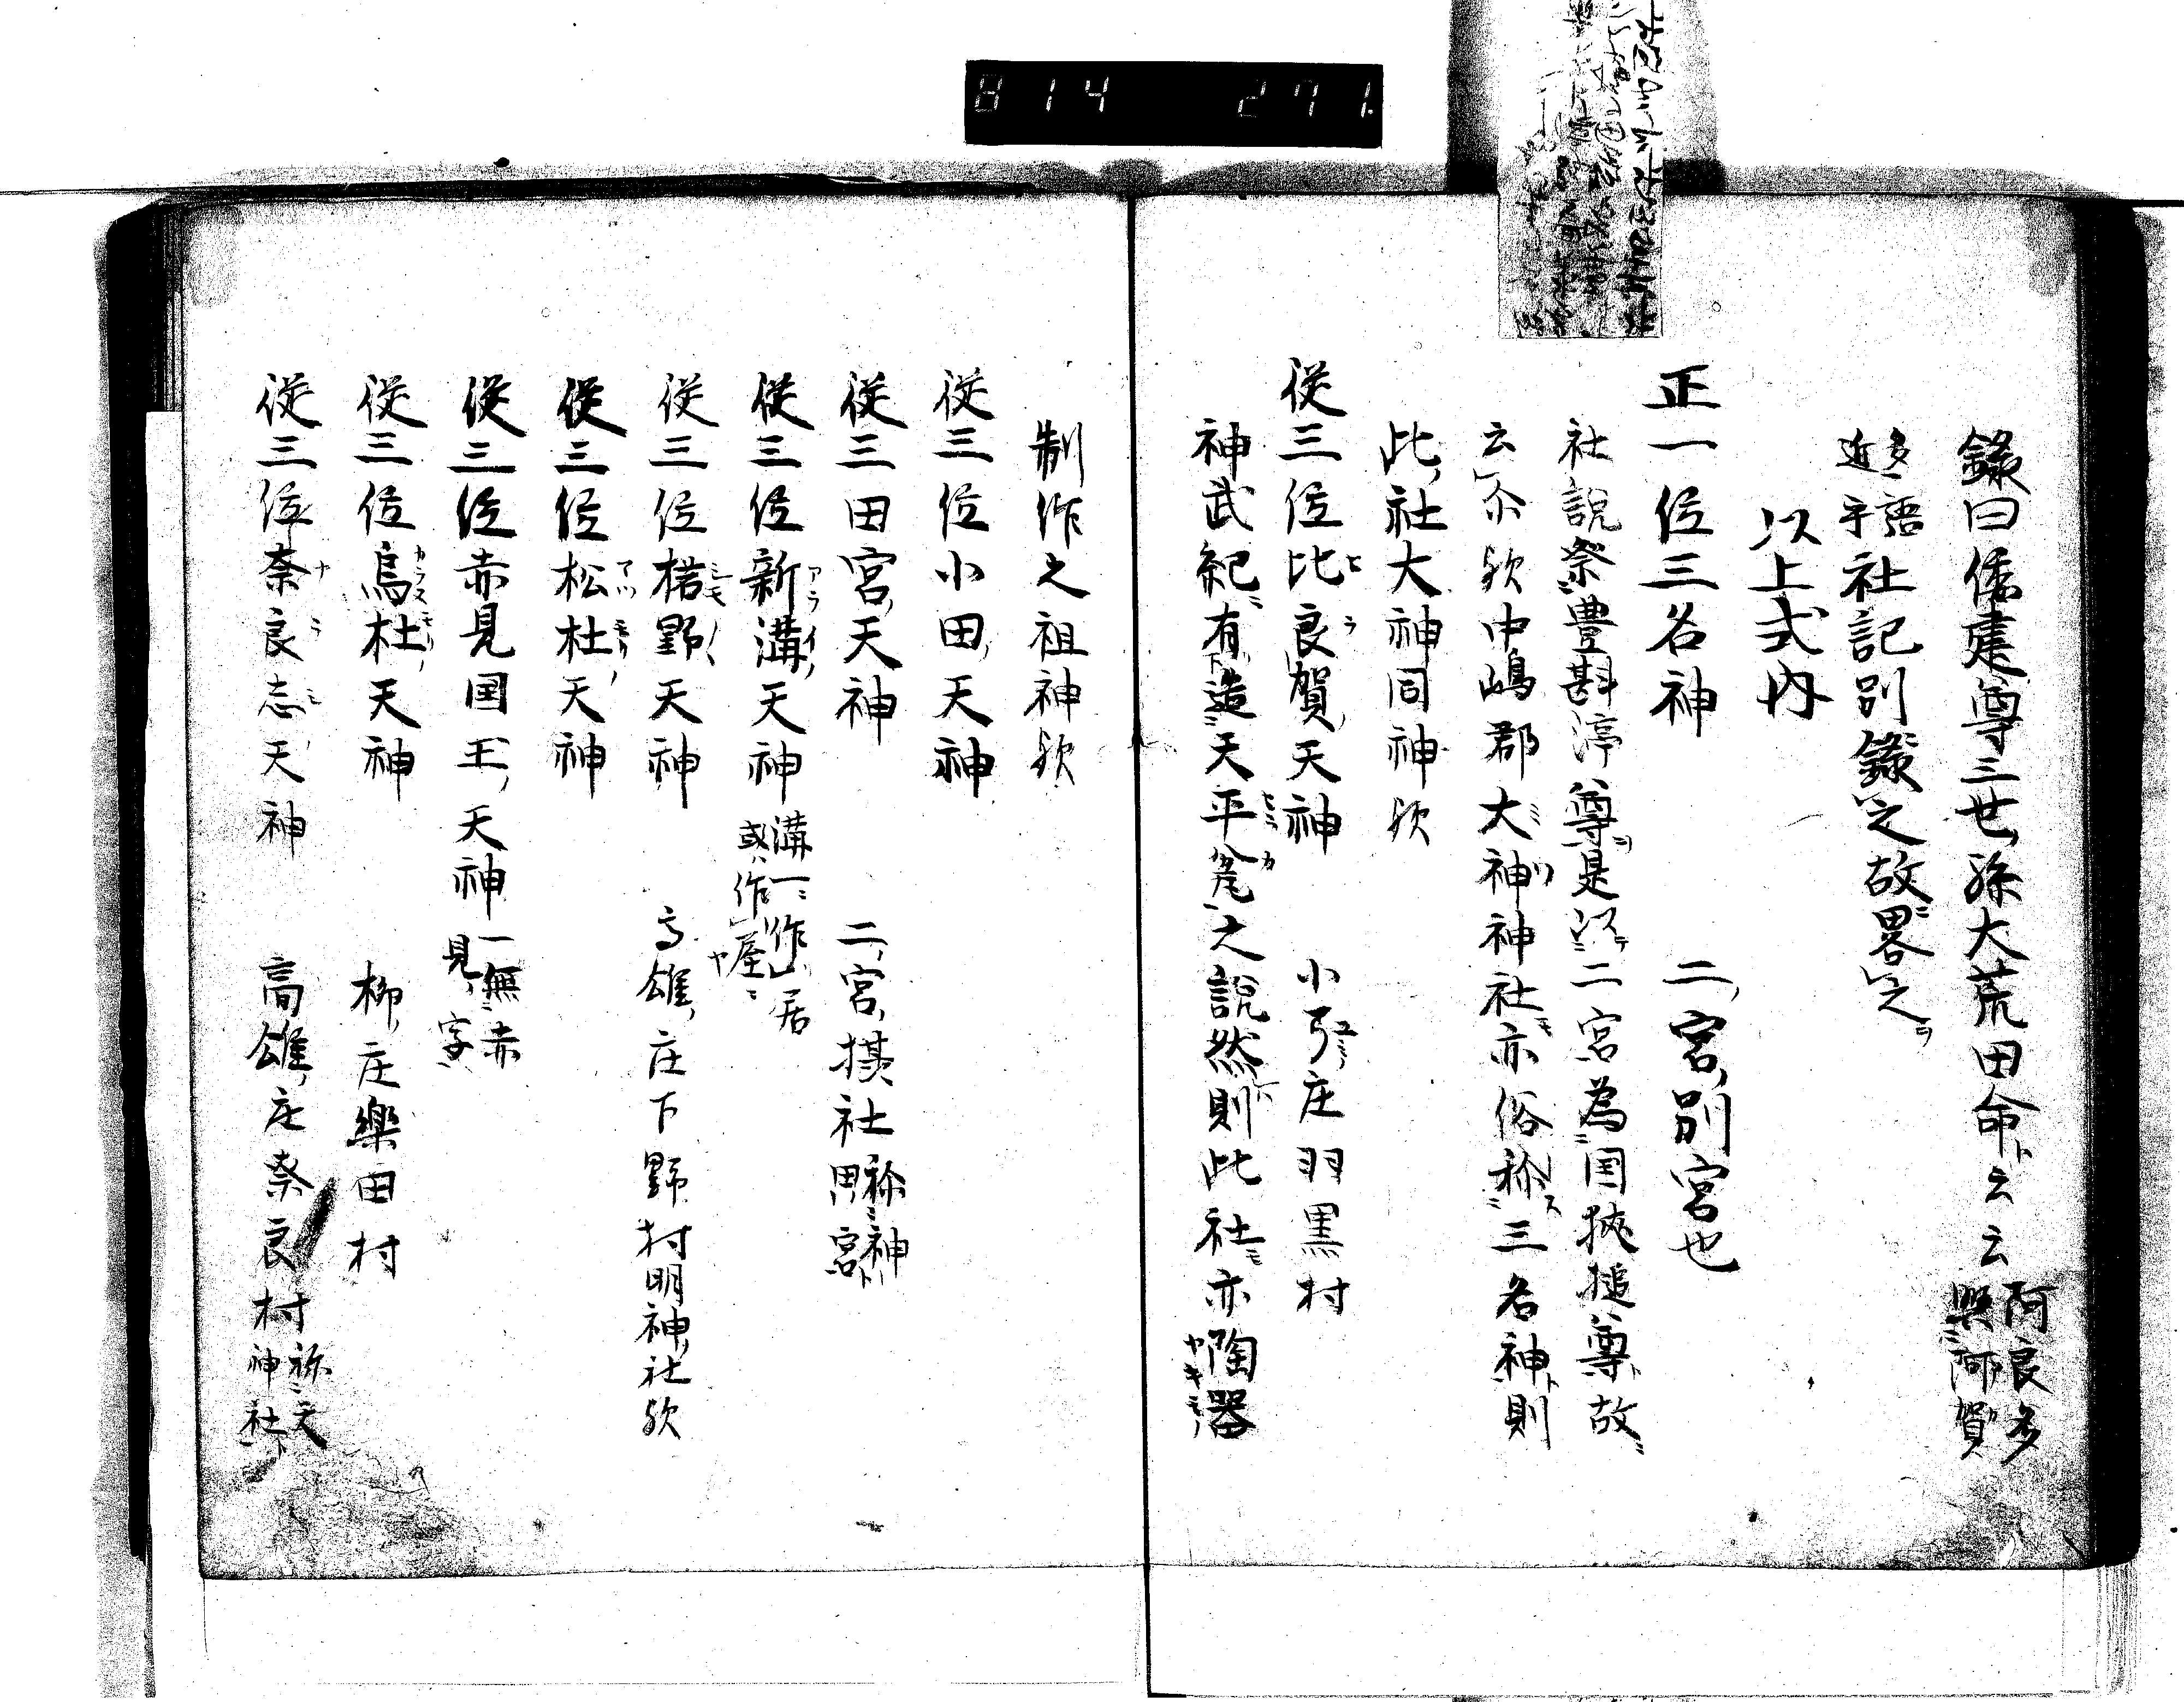 814 271.
錄曰倭建尊三世孫大荒田命ト云云阿良多與阿賀
多語近乎社記別錄之故畧之
以上式内
正一位三名神　二ノ宮ノ別宮也
社説祭豊斟渟尊是以二宮為国狹槌尊故
云尒欤中嶋郡大神神社亦俗称三名神則
此ノ社大神同神欤
從三位比良賀天神　小弓庄羽黒村
神武紀有造天平瓮之説然則此社亦陶器
制作之祖神欤
從三位小田天神
從三田宮天神　二ノ宮ノ摸社称神田宮
從三位新溝天神　溝一作居或作屋
從三位楉野天神　高雄庄下野村明神社欤
從三位松杜天神
從三位赤見国王天神　一無赤見字
從三位烏杜天神　柳庄樂田村
從三位奈良志天神　高雄庄奈良村称天神社